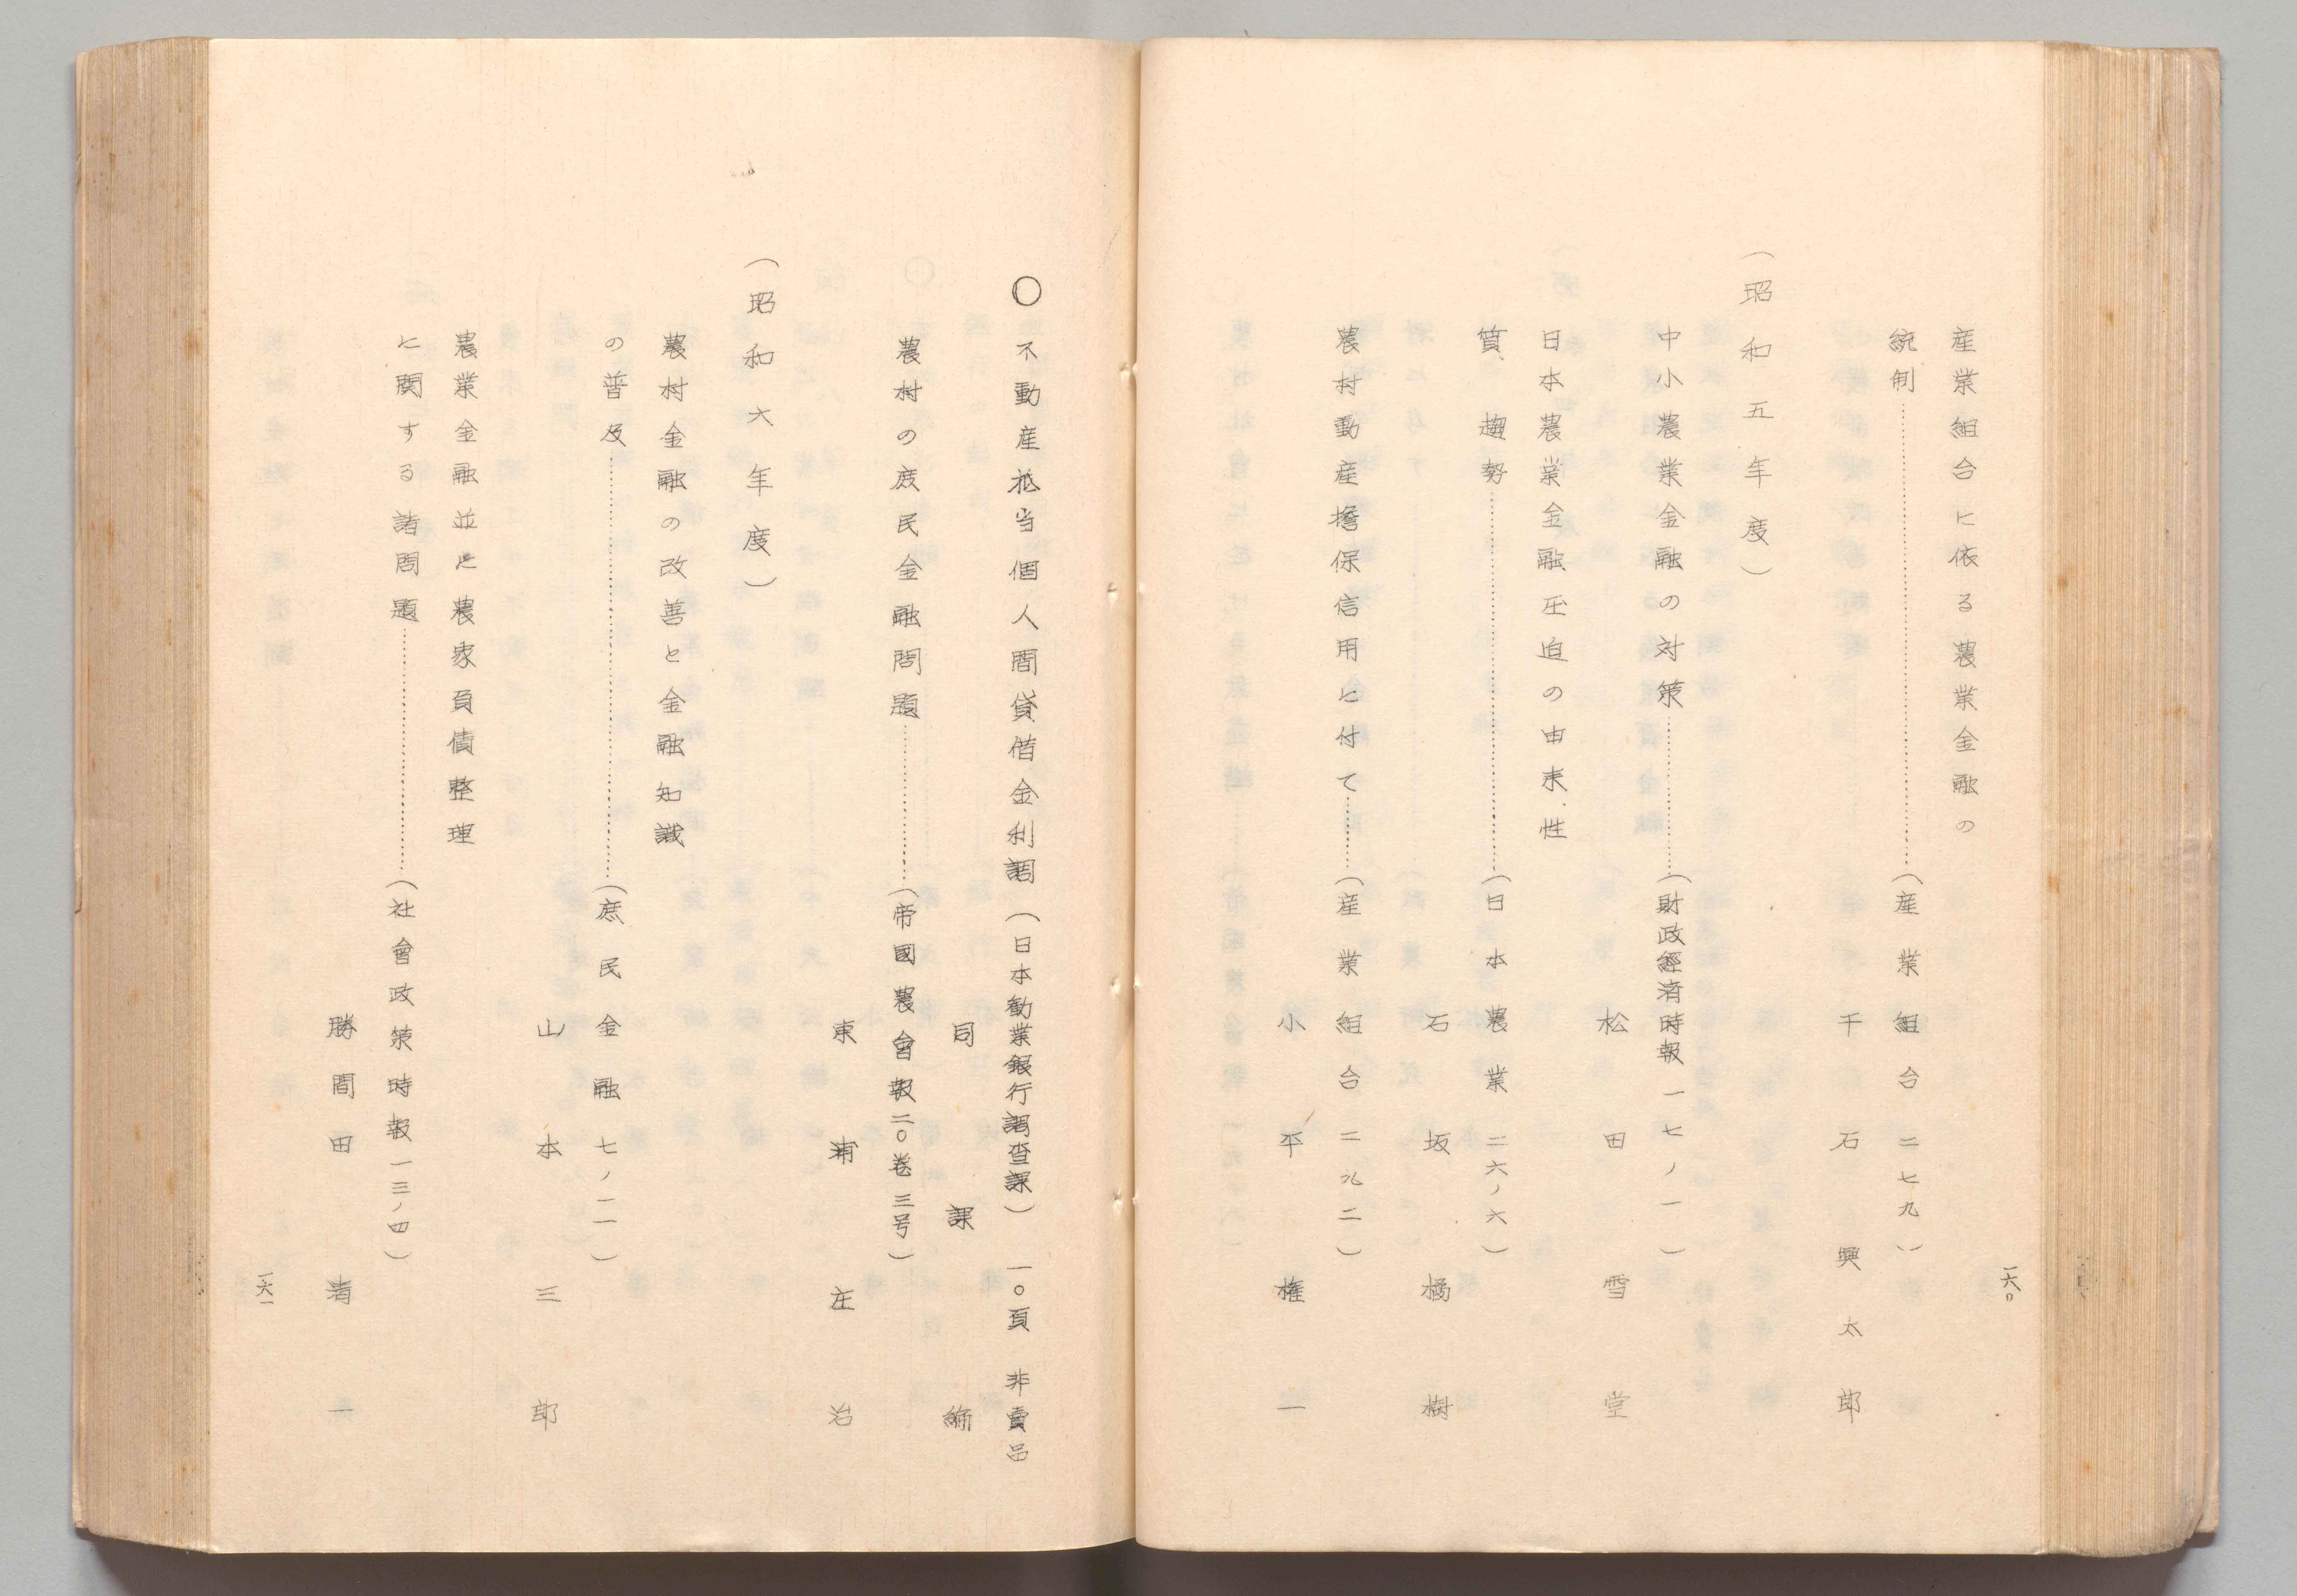 産業組合に依る農業金融の
統制……………………（産業組合 二七九）
千石興太郎
（昭和五年度）
中小農業金融の対策…………（財政經済時報 一七ノ一）
松田雪堂
日本農業金融圧迫の由来、性
質、趨勢……………………（日本農業 二六ノ六）
石坂橘樹
農村動産擔保信用に付て……（産業組合 二九二）
小平権一
一六〇
○不動産抵当個人間貸借金利調（日本勧業銀行調査課） 一〇頁 非賣品
同課編
農村の庶民金融問題…………（帝國農會報 二〇巻三号）
東浦庄治
（昭和六年度）
農村金融の改善と金融知識
の普及……………………（庶民金融 七ノ一一）
山本三郎
農業金融並に農家負債整理
に関する諸問題……………（社會政策時報 一三ノ四）
勝間田清一
一六一